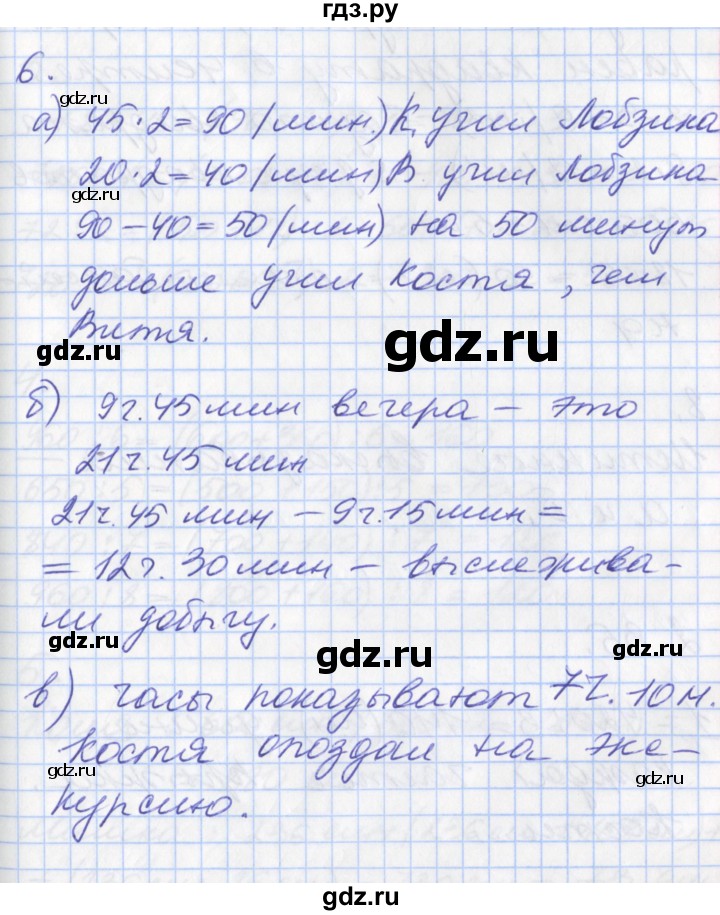 гдз.ру
6.
gdz.ru
а) 45·2=90 (мин.) К. учил Лобзика
20·2=40 (мин) В. учил Лобзика
gdz.ru
90-40=50 (мин) на 50 минут
дольше учил Костя, чем
Витя.
gdz.ru
gdz.ru
gdz.ru
б) 9 ч. 45 мин вечера - это
21 ч. 45 мин
gdz.ru
21 ч. 45 мин - 9 ч. 15 мин =
= 12 ч. 30 мин - выслежива-
ли добычу.
gdz.ru
gdz.ru
gdz.ru
в) часы показывают 7 ч. 10 м.
Костя опоздал на экс-
gdz.ru
gdz.ru
курсию.
gdz.ru
gdz.ru